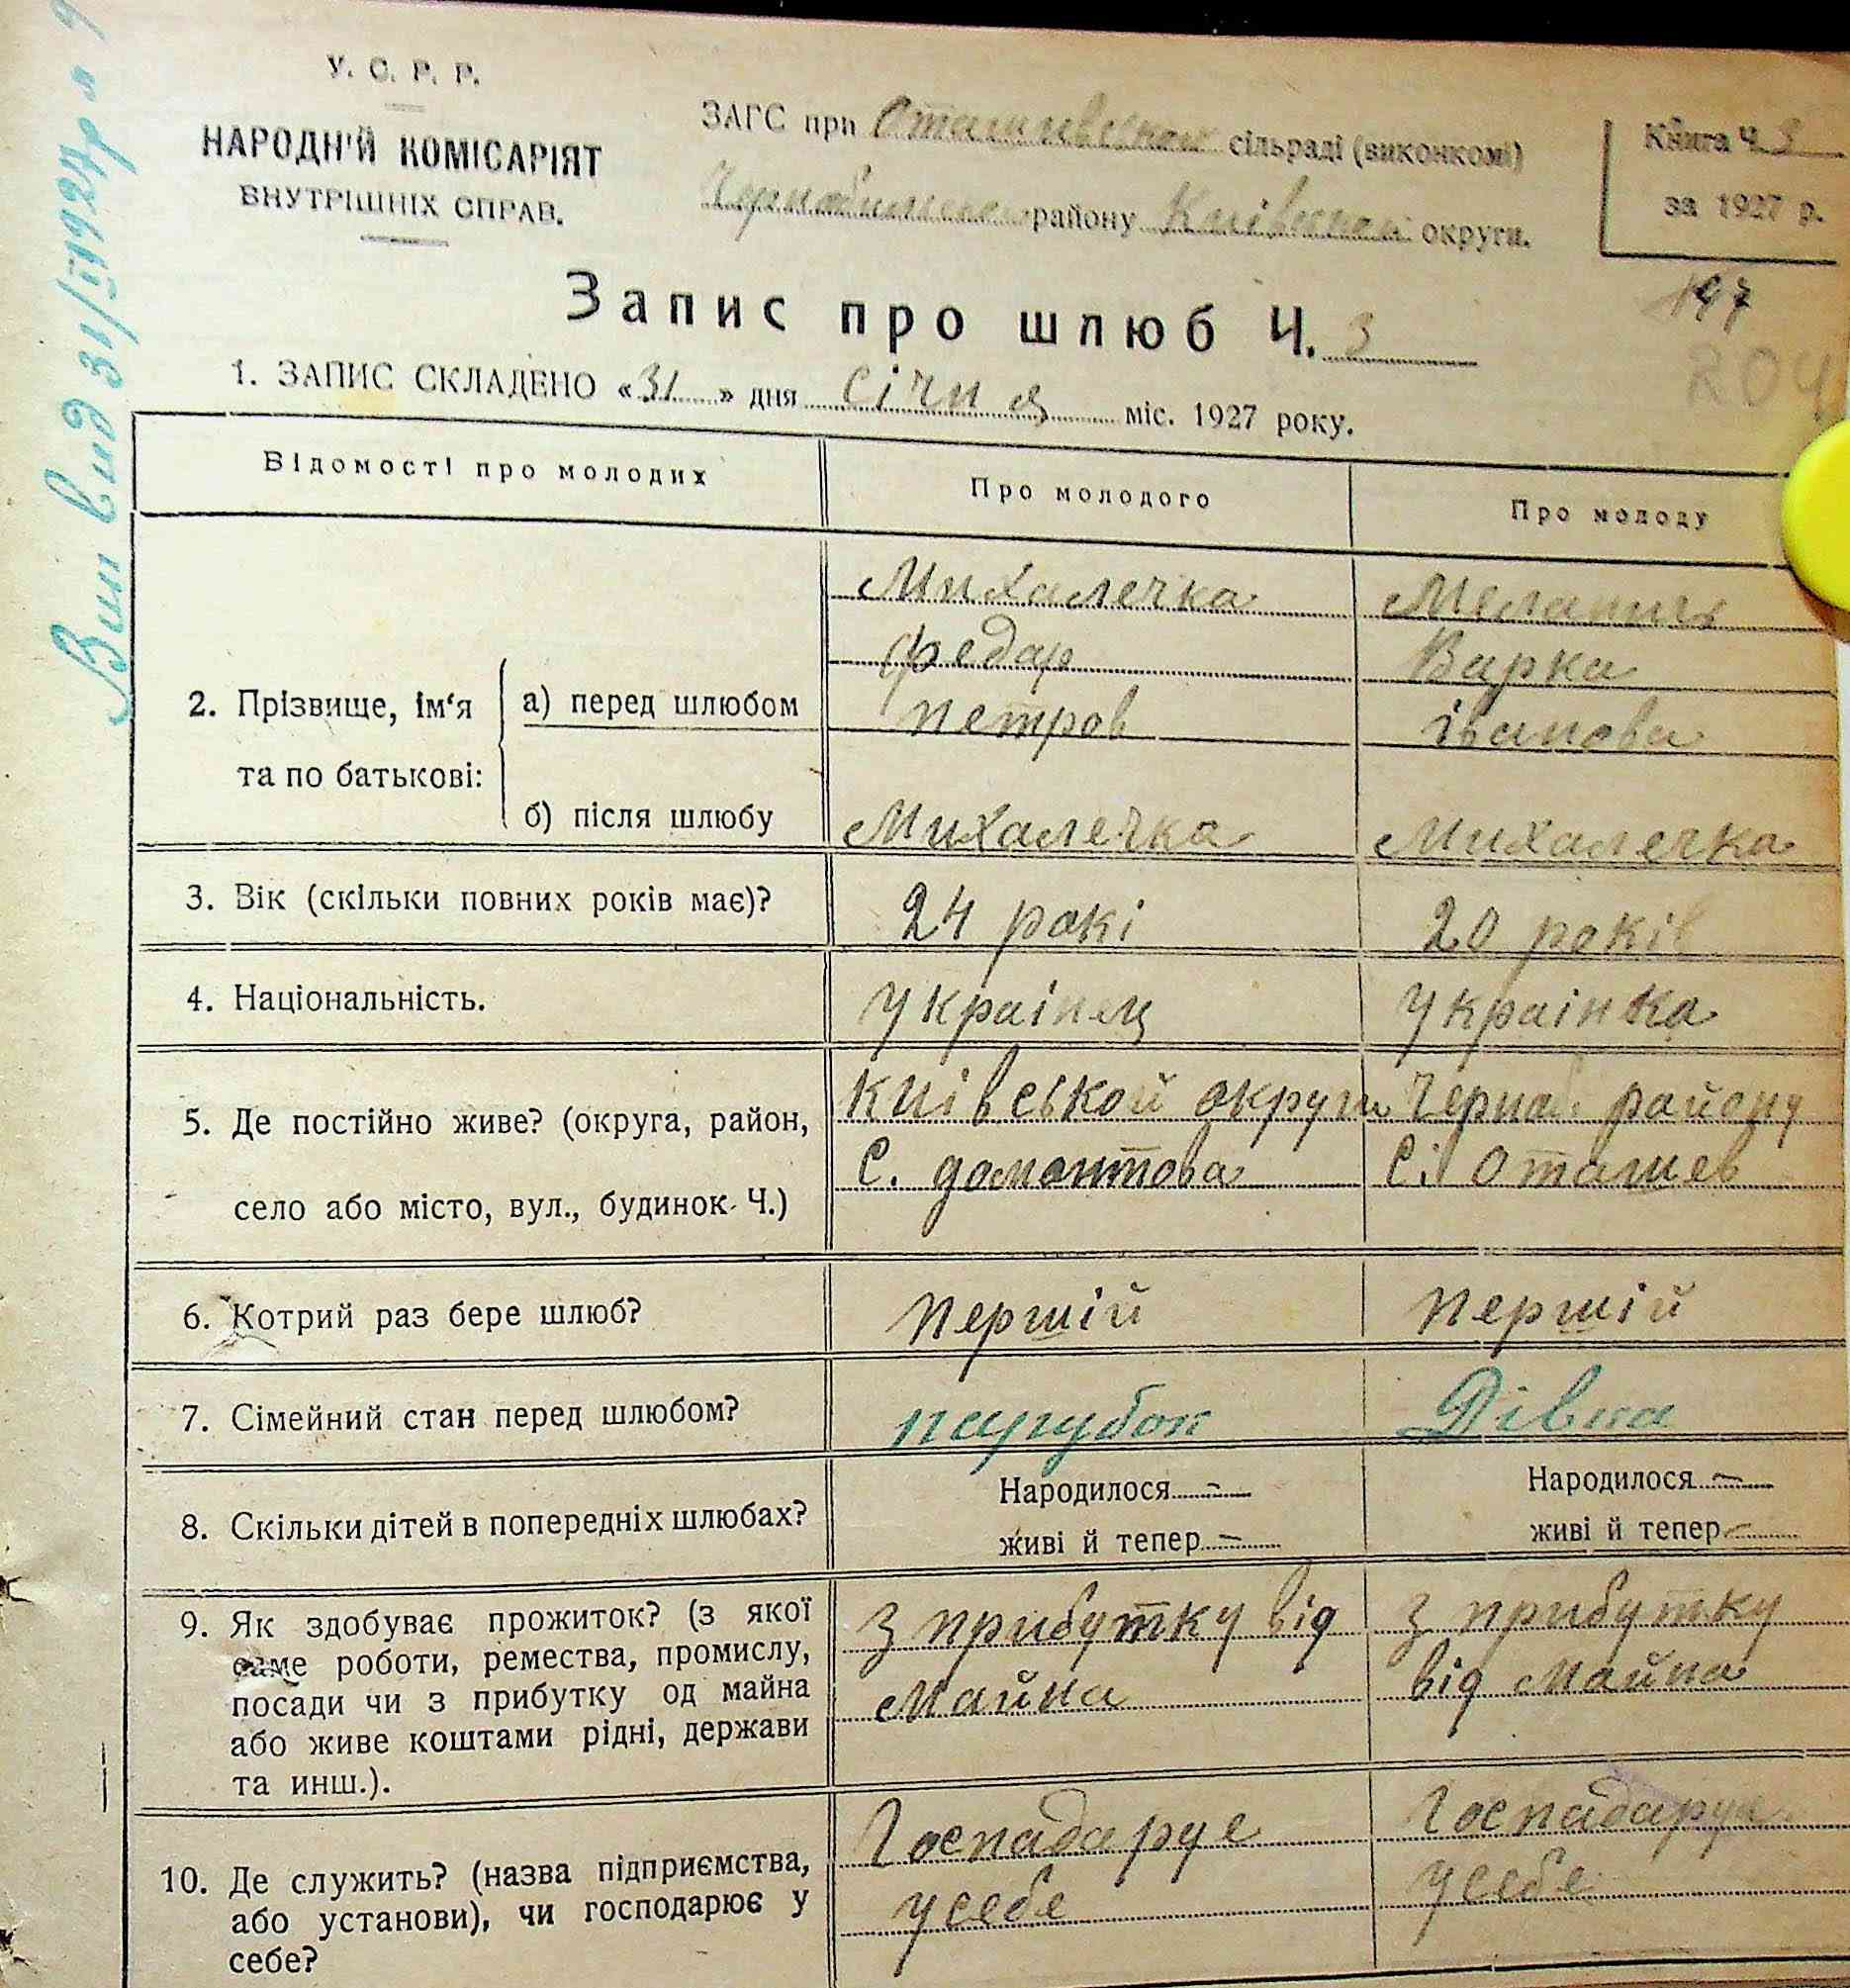 У. С. Р. Р.
НАРОДНІЙ КОМІСАРІЯТ
ВНУТРІШНІХ СПРАВ.
ЗАГС при Оташивской сільраді (виконкомі)
району Київской округи.
Книга Ч. 3
за 1927 р.
Запис про шлюб Ч. 3
197
204
1. ЗАПИС СКЛАДЕНО «31» дня січня міс. 1927 року.
Вип вид 31/II 1927р
Відомості про молодих
Про молодого
Про молоду
2. Прізвище, ім‘я та по батькові:
а) перед шлюбом
Михалечка
Федар
петров
Варка
іванова
б) після шлюбу
Михалечка
Михалечка
3. Вік (скільки повних років має)?
24 рокі
20 років
4. Національність.
Украінец
Украінка
5. Де постійно живе? (округа, район,
село або місто, вул., будинок Ч.)
Київськой округи Черноб. району
С. домонтова
С. Оташев
6. Котрий раз бере шлюб?
першій
першій
7. Сімейний стан перед шлюбом?
парубок
Дівка
8. Скільки дітей в попередніх шлюбах?
Народилося –
живі й тепер –
Народилося –
живі й тепер –
9. Як здобуває прожиток? (з якої
саме роботи, ремества, промислу,
посади чи з прибутку од майна
або живе коштами рідні, держави
та инш.).
З прибутку від
майна
З прибутку
від майна
10. Де служить? (назва підприємства,
або установи), чи господарює у
себе?
Госпадаруе
усебе
Госпадаруе
усебе